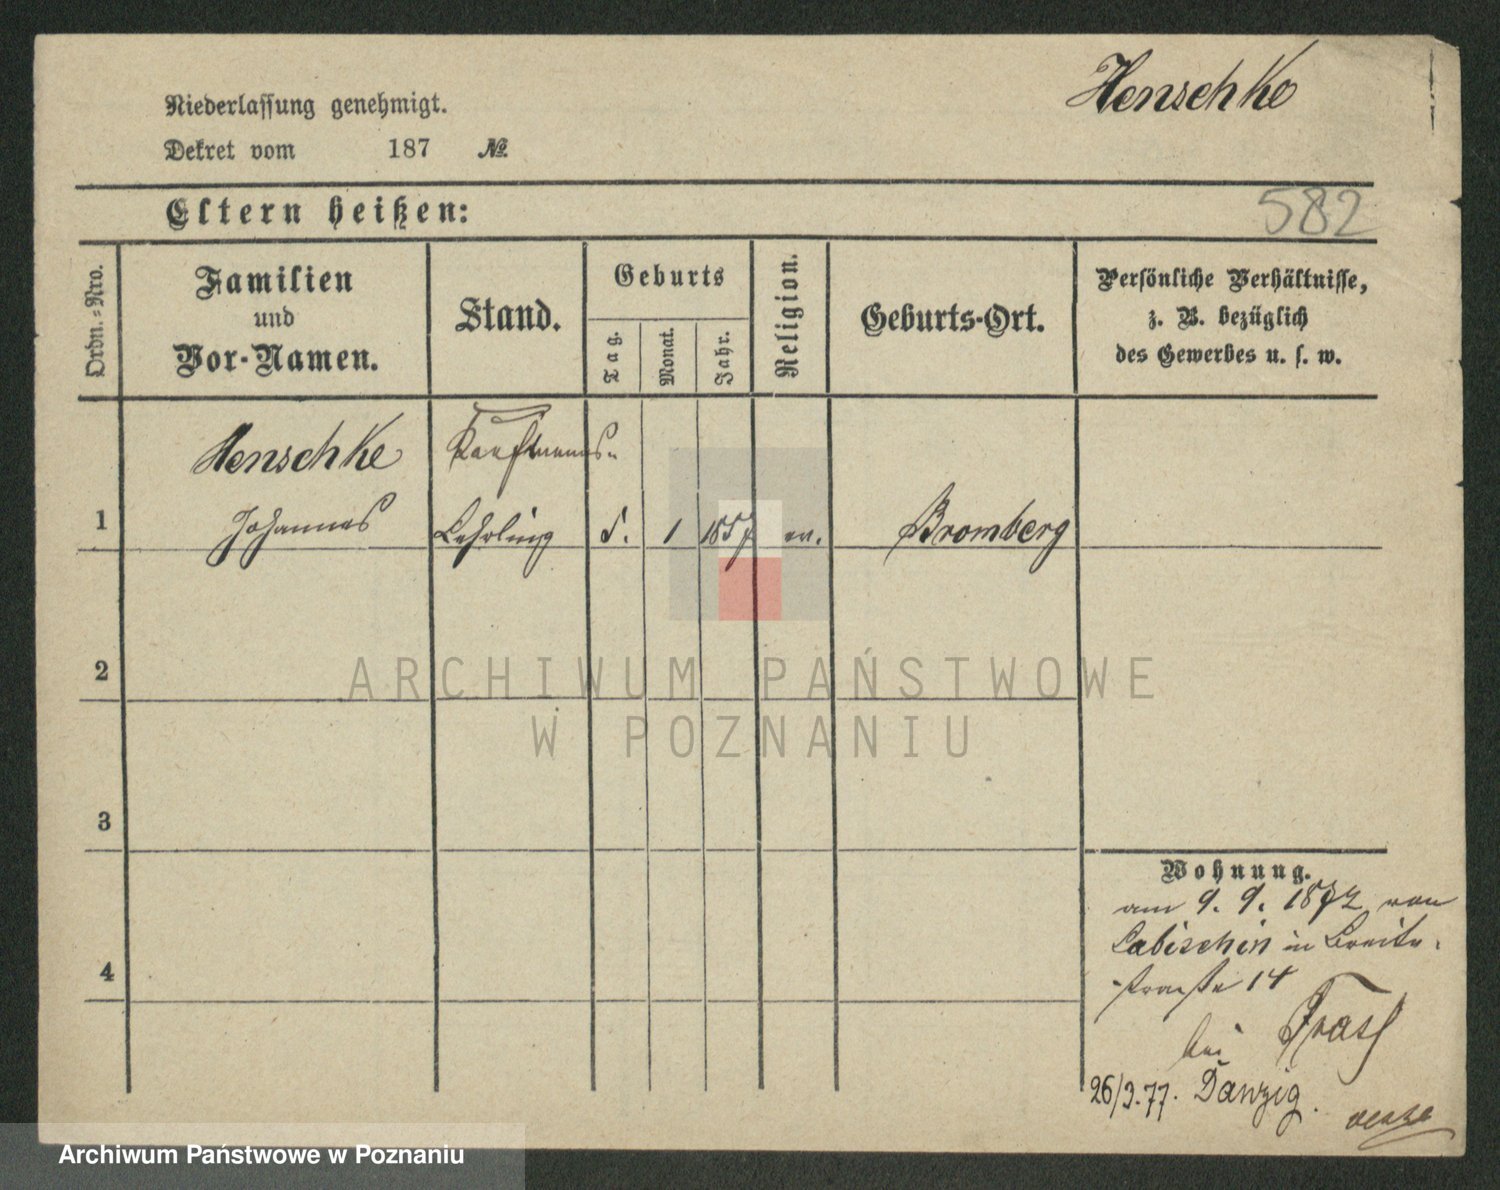 Henschke
Niederlassung genehmigt.
Dekret vom 187 №
Eltern heißen:
582
Ordn.-Nro.
Familien
und
Vor-Namen.
Stand.
Geburts
Tag.
Monat.
Jahr.
Religion.
Geburts-Ort.
Persönliche Verhältnisse,
z. B. bezüglich
des Gewerbes u. s. w.
Henschke
Kaufmanns-
1
Johannes
Lehrling
5.
1
1857
ev.
Bromberg
2
ARCHIWUM PAŃSTWOWE
W POZNANIU
3
4
Wohnung.
am 9. 9. 1872 von
Labischin in Breite-
straße 14
bei
26/3.77. Danzig.
Archiwum Państwowe w Poznaniu